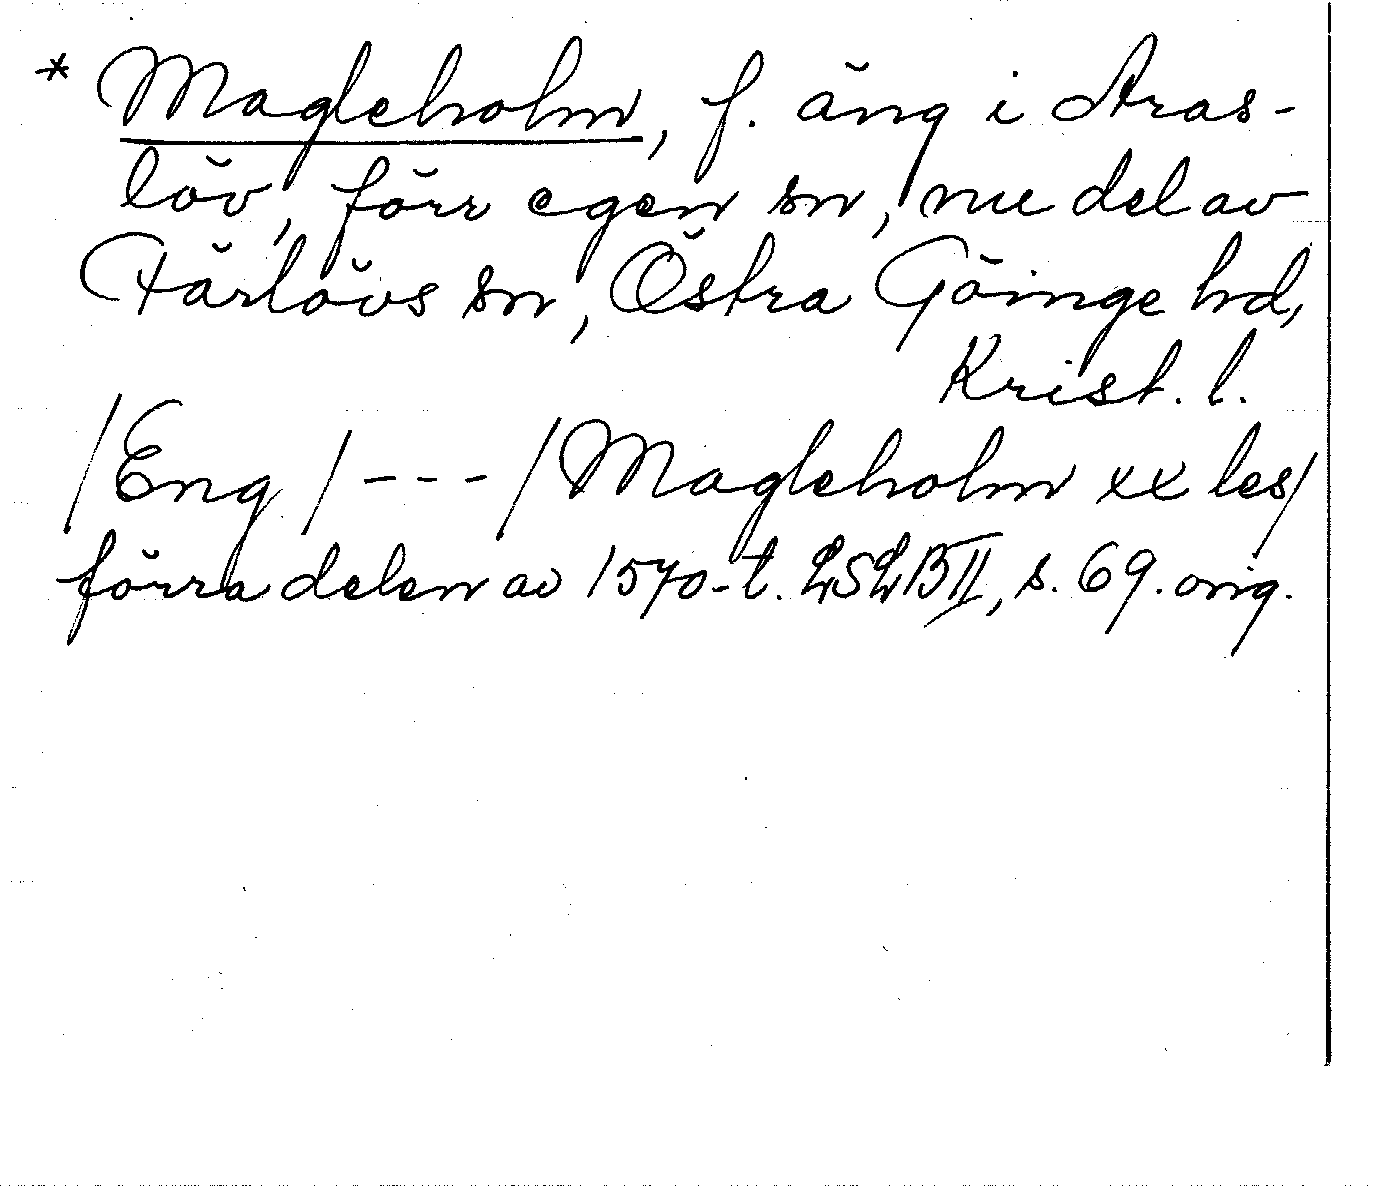 * Magleholm, f. äng i Aras-
löv, förr egen sn, nu del av
Färlövs sn, Östra Göinge hd,
Krist. l.
/Eng/---/Magleholm xx les/
förra delen av 1570-t. LSLB II, s. 69. orig.